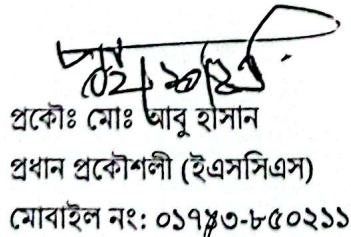 প্রকৌঃ মোঃ আবু হাসান
প্রধান প্রকৌশলী (ইএসসিএস)
মোবাইল নং: ০১৭৪৩-৮৫০২১১